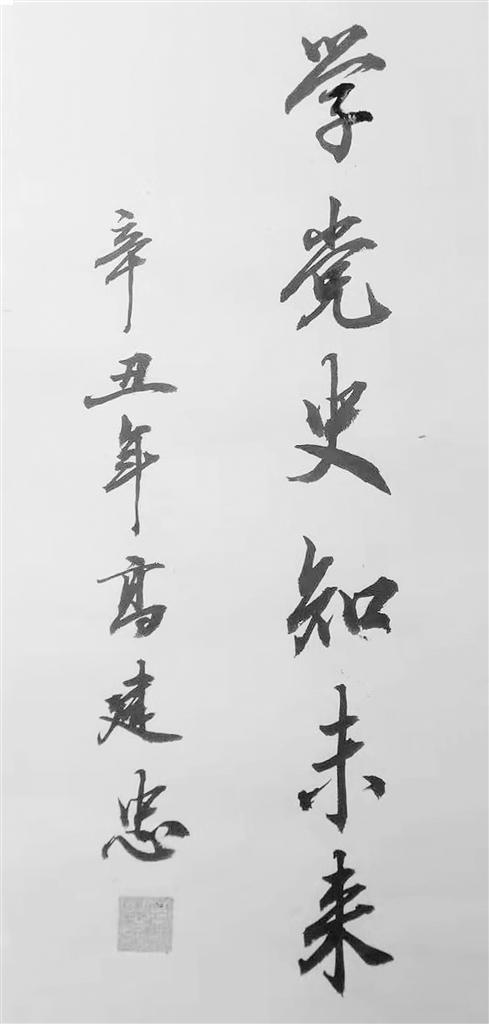 学党史知未来
辛丑年高建忠